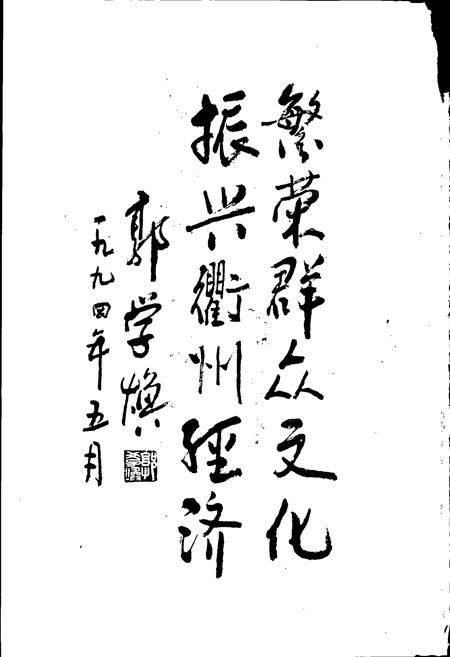 繁荣群众文化
振兴衢州经济
郭学焕
一九九四年五月